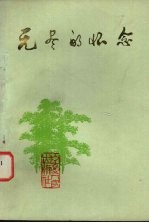 无尽的怀念